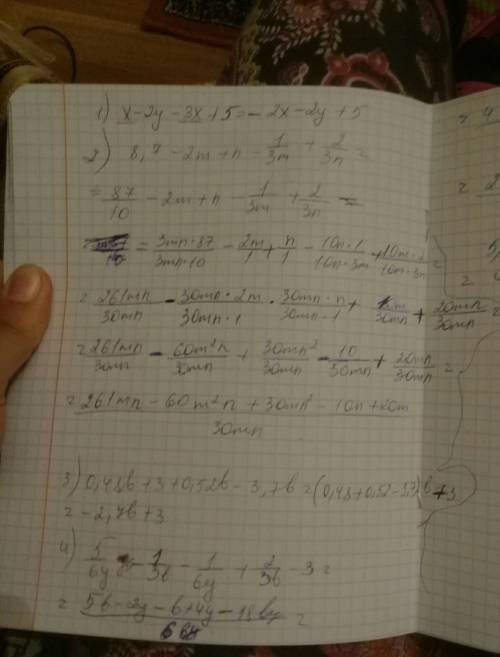 1) x-2y-3x+5=-2x-2y+5
2) 8,7-2m+n-1/3m+2/3n=
=87/10-2m+n-1/3m+2/3n=
=3mn·87/3mn·10-2m/1+n/1-10n·1/10n·3m+10m·2/10m·3n=
=261mn/30mn-30mn·2m/30mn·1·30mn·n/30mn·1+ /30mn+20mn/30mn=
=261mn/30mn-60m²n/30mn+30mn²/30mn-10/30mn+20mn/30mn=
=261mn-60m²n+30mn²-10n+20m/30mn
3) 0,48b+3+0,52b-3,7b=(0,48+0,52-3,7)b+3
=-2,7b+3
4) 5/6y-1/3b-1/6y+2/3b-3=
=5b-2y-b+4y-18by/6by=